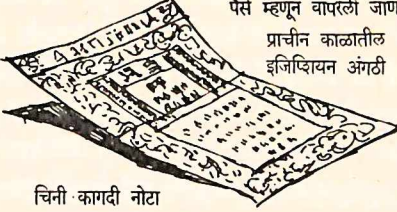 पैसे म्हणून वापरली जाण
प्राचीन काळातील
इजिप्शियन अंगठी
चिनी कागदी नोटा